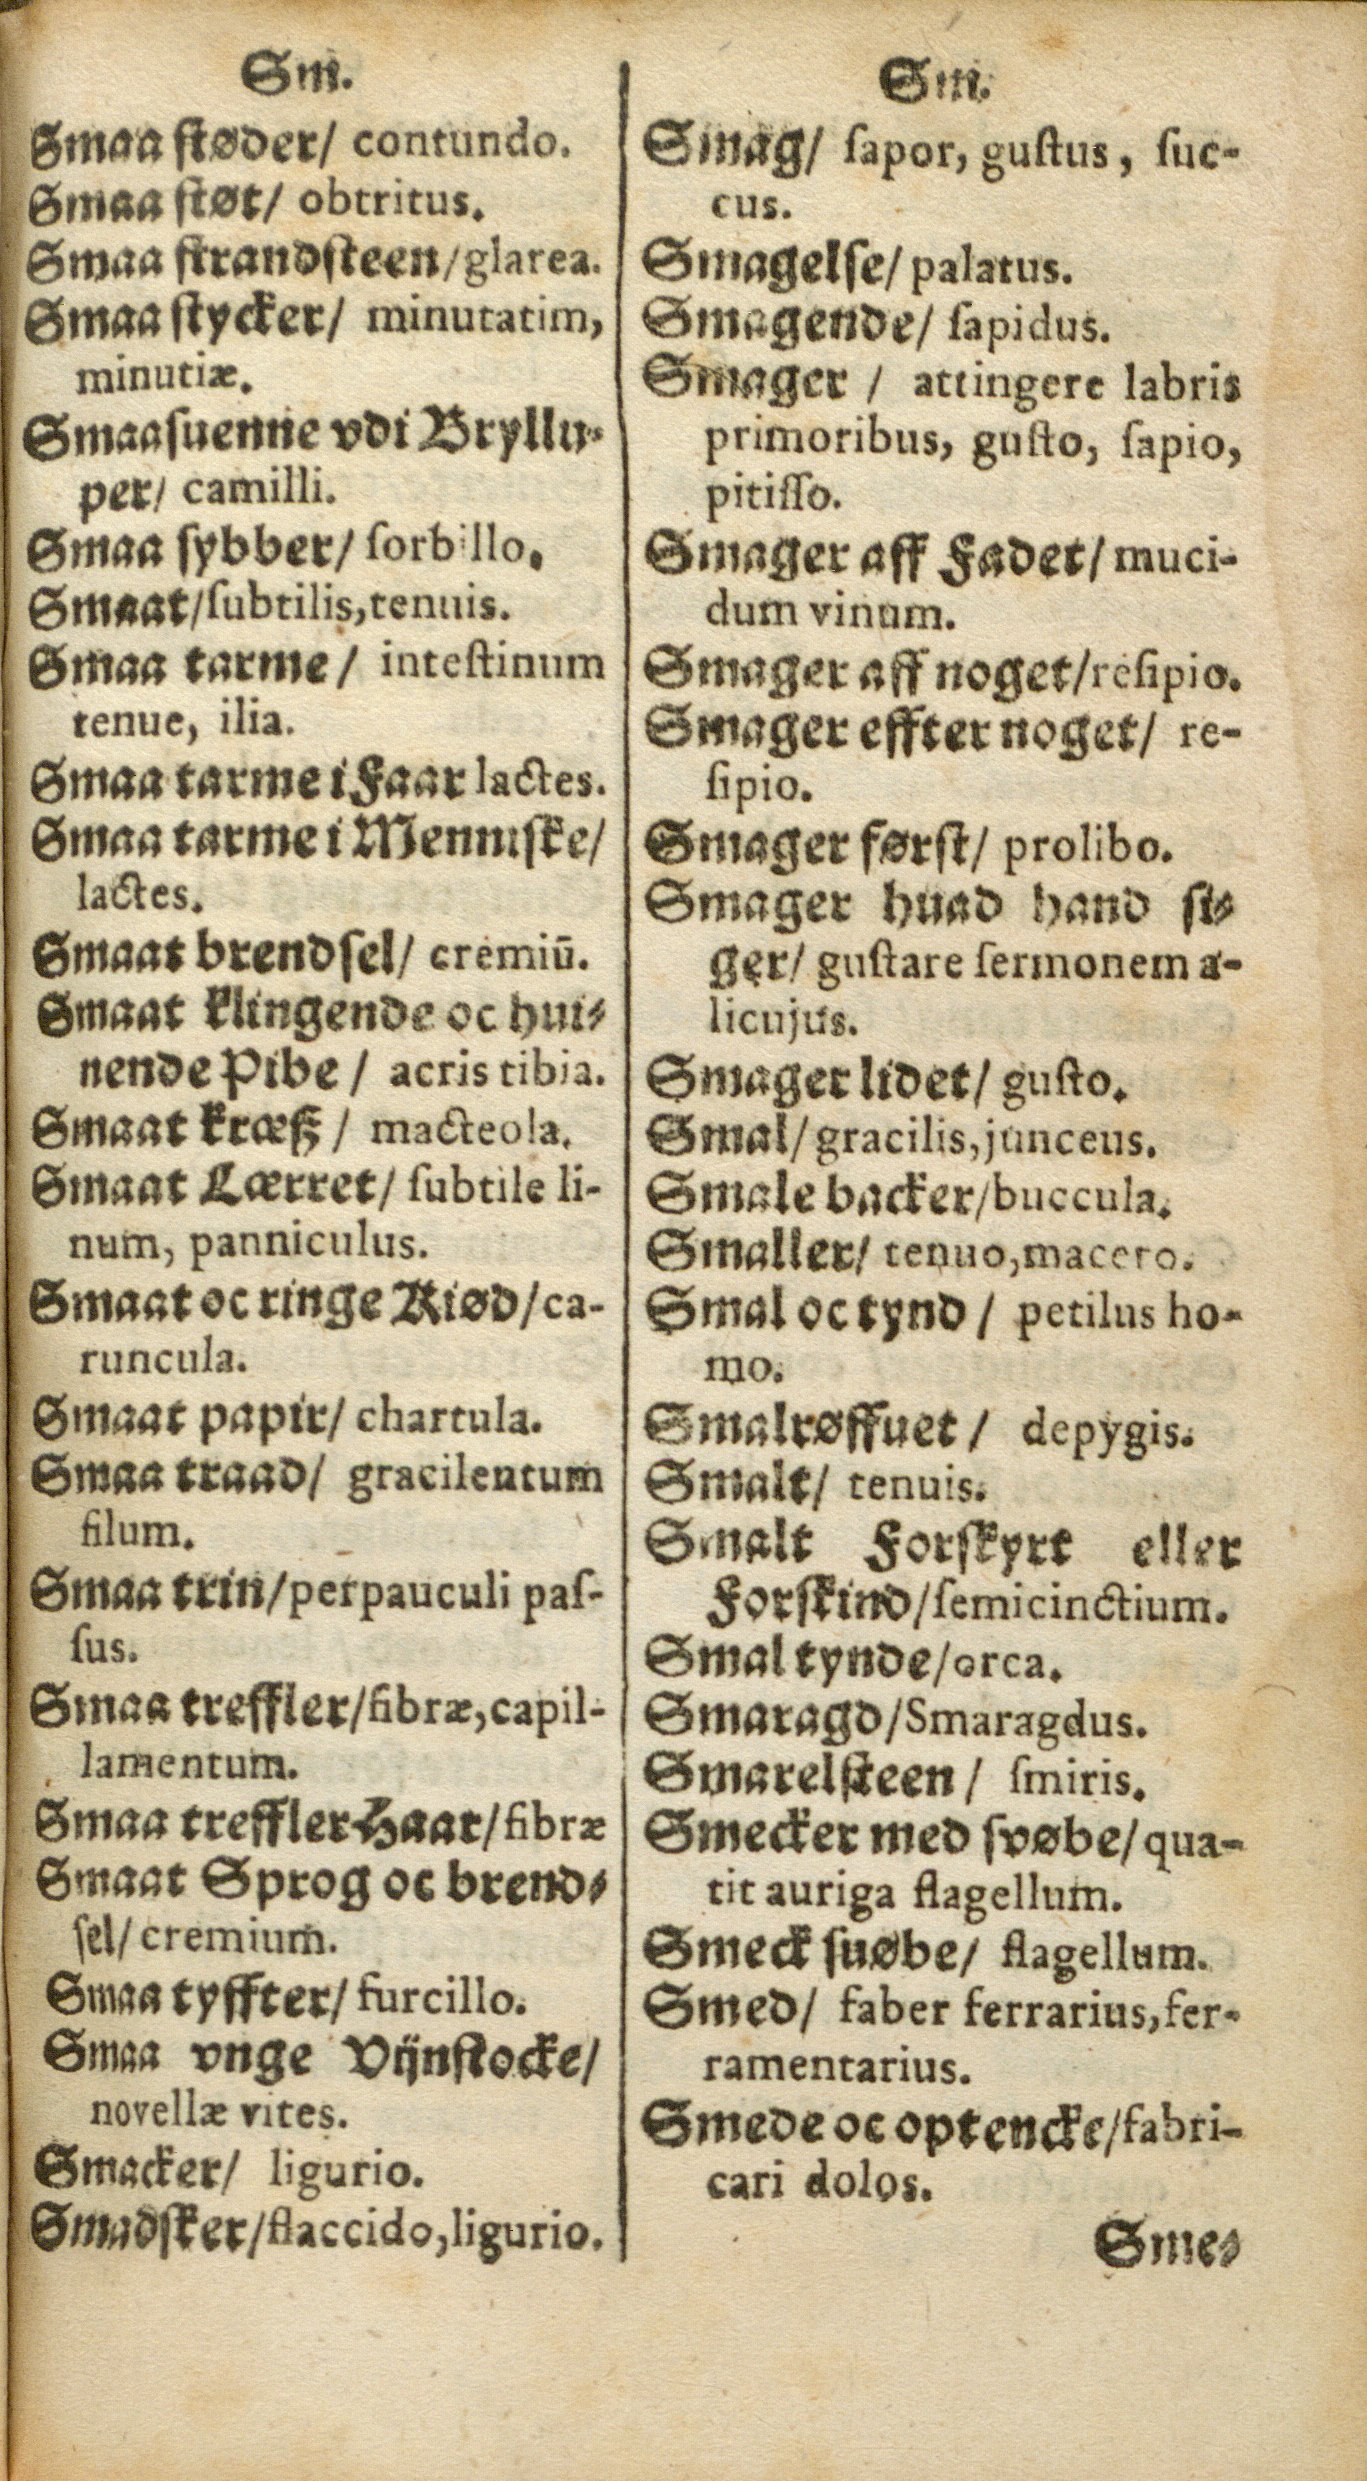 Sm.
Smaa støder/ contundo.
Smaa støt/ obtritus.
Smaa strandsteen/glarea.
Smaa stycker/ minutatim,
minutiæ.
Smaasuenne vdi Bryllu-
per/ camilli.
Smaa sybber/ ſorbillo.
Smaat/ſubtilis,tenuis.
Smaa tarme/ inteſtinum
tenue, ilia.
Smaa tarme i Faar lactes.
Smaa tarme i Menniske/
lactes.
Smaat brendsel/ cremiū.
Smaat klingende oc hui-
nende Pibe/ acris tibia.
Smaat kræß/ macteola.
Smaat Lærret/ ſubtile li-
num, panniculus.
Smaat oc ringe Kiød/ca-
runcula.
Smaat papir/ chartula.
Smaa traad/ gracilentum
filum.
Smaa trin/perpauculi paſ-
ſus.
Smaa treffler/fibræ,capil-
lamentum.
Smaa treffler Haar/fibræ
Smaat Sprog oc brend-
sel/ cremium.
Smaa tyffter/ furcillo.
Smaa vnge Vijnstocke/
novellæ vites.
Smacker/ ligurio.
Smadsker/flaccido,ligurio.
Sm.
Smag/ ſapor, guſtus, ſuc-
cus.
Smagelse/ palatus.
Smagende/ ſapidus.
Smager/ attingere labris
primoribus, guſto, ſapio,
pitiſſo.
Smager aff Fadet/ muci-
dum vinum.
Smager aff noget/reſipio.
Smager effter noget/ re-
ſipio.
Smager først/ prolibo.
Smager huad hand si-
ger/ guſtare ſermonem a-
licujus.
Smager lidet/ guſto.
Smal/ gracilis, junceus.
Smale backer/buccula.
Smaller/ tenuo,macero.
Smal oc tynd/ petilus ho-
mo.
Smalrøffuet/ depygis.
Smalt/ tenuis.
Smalt Forskyrt eller
Forskind/ſemicinctium.
Smal tynde/orca.
Smaragd/Smaragdus.
Smarelsteen/ ſmiris.
Smecker med svøbe/ qua-
tit auriga flagellum.
Smeck suøbe/ flagellum.
Smed/ faber ferrarius,fer-
ramentarius.
Smede oc optencke/fabri-
cari dolos.
Sme-